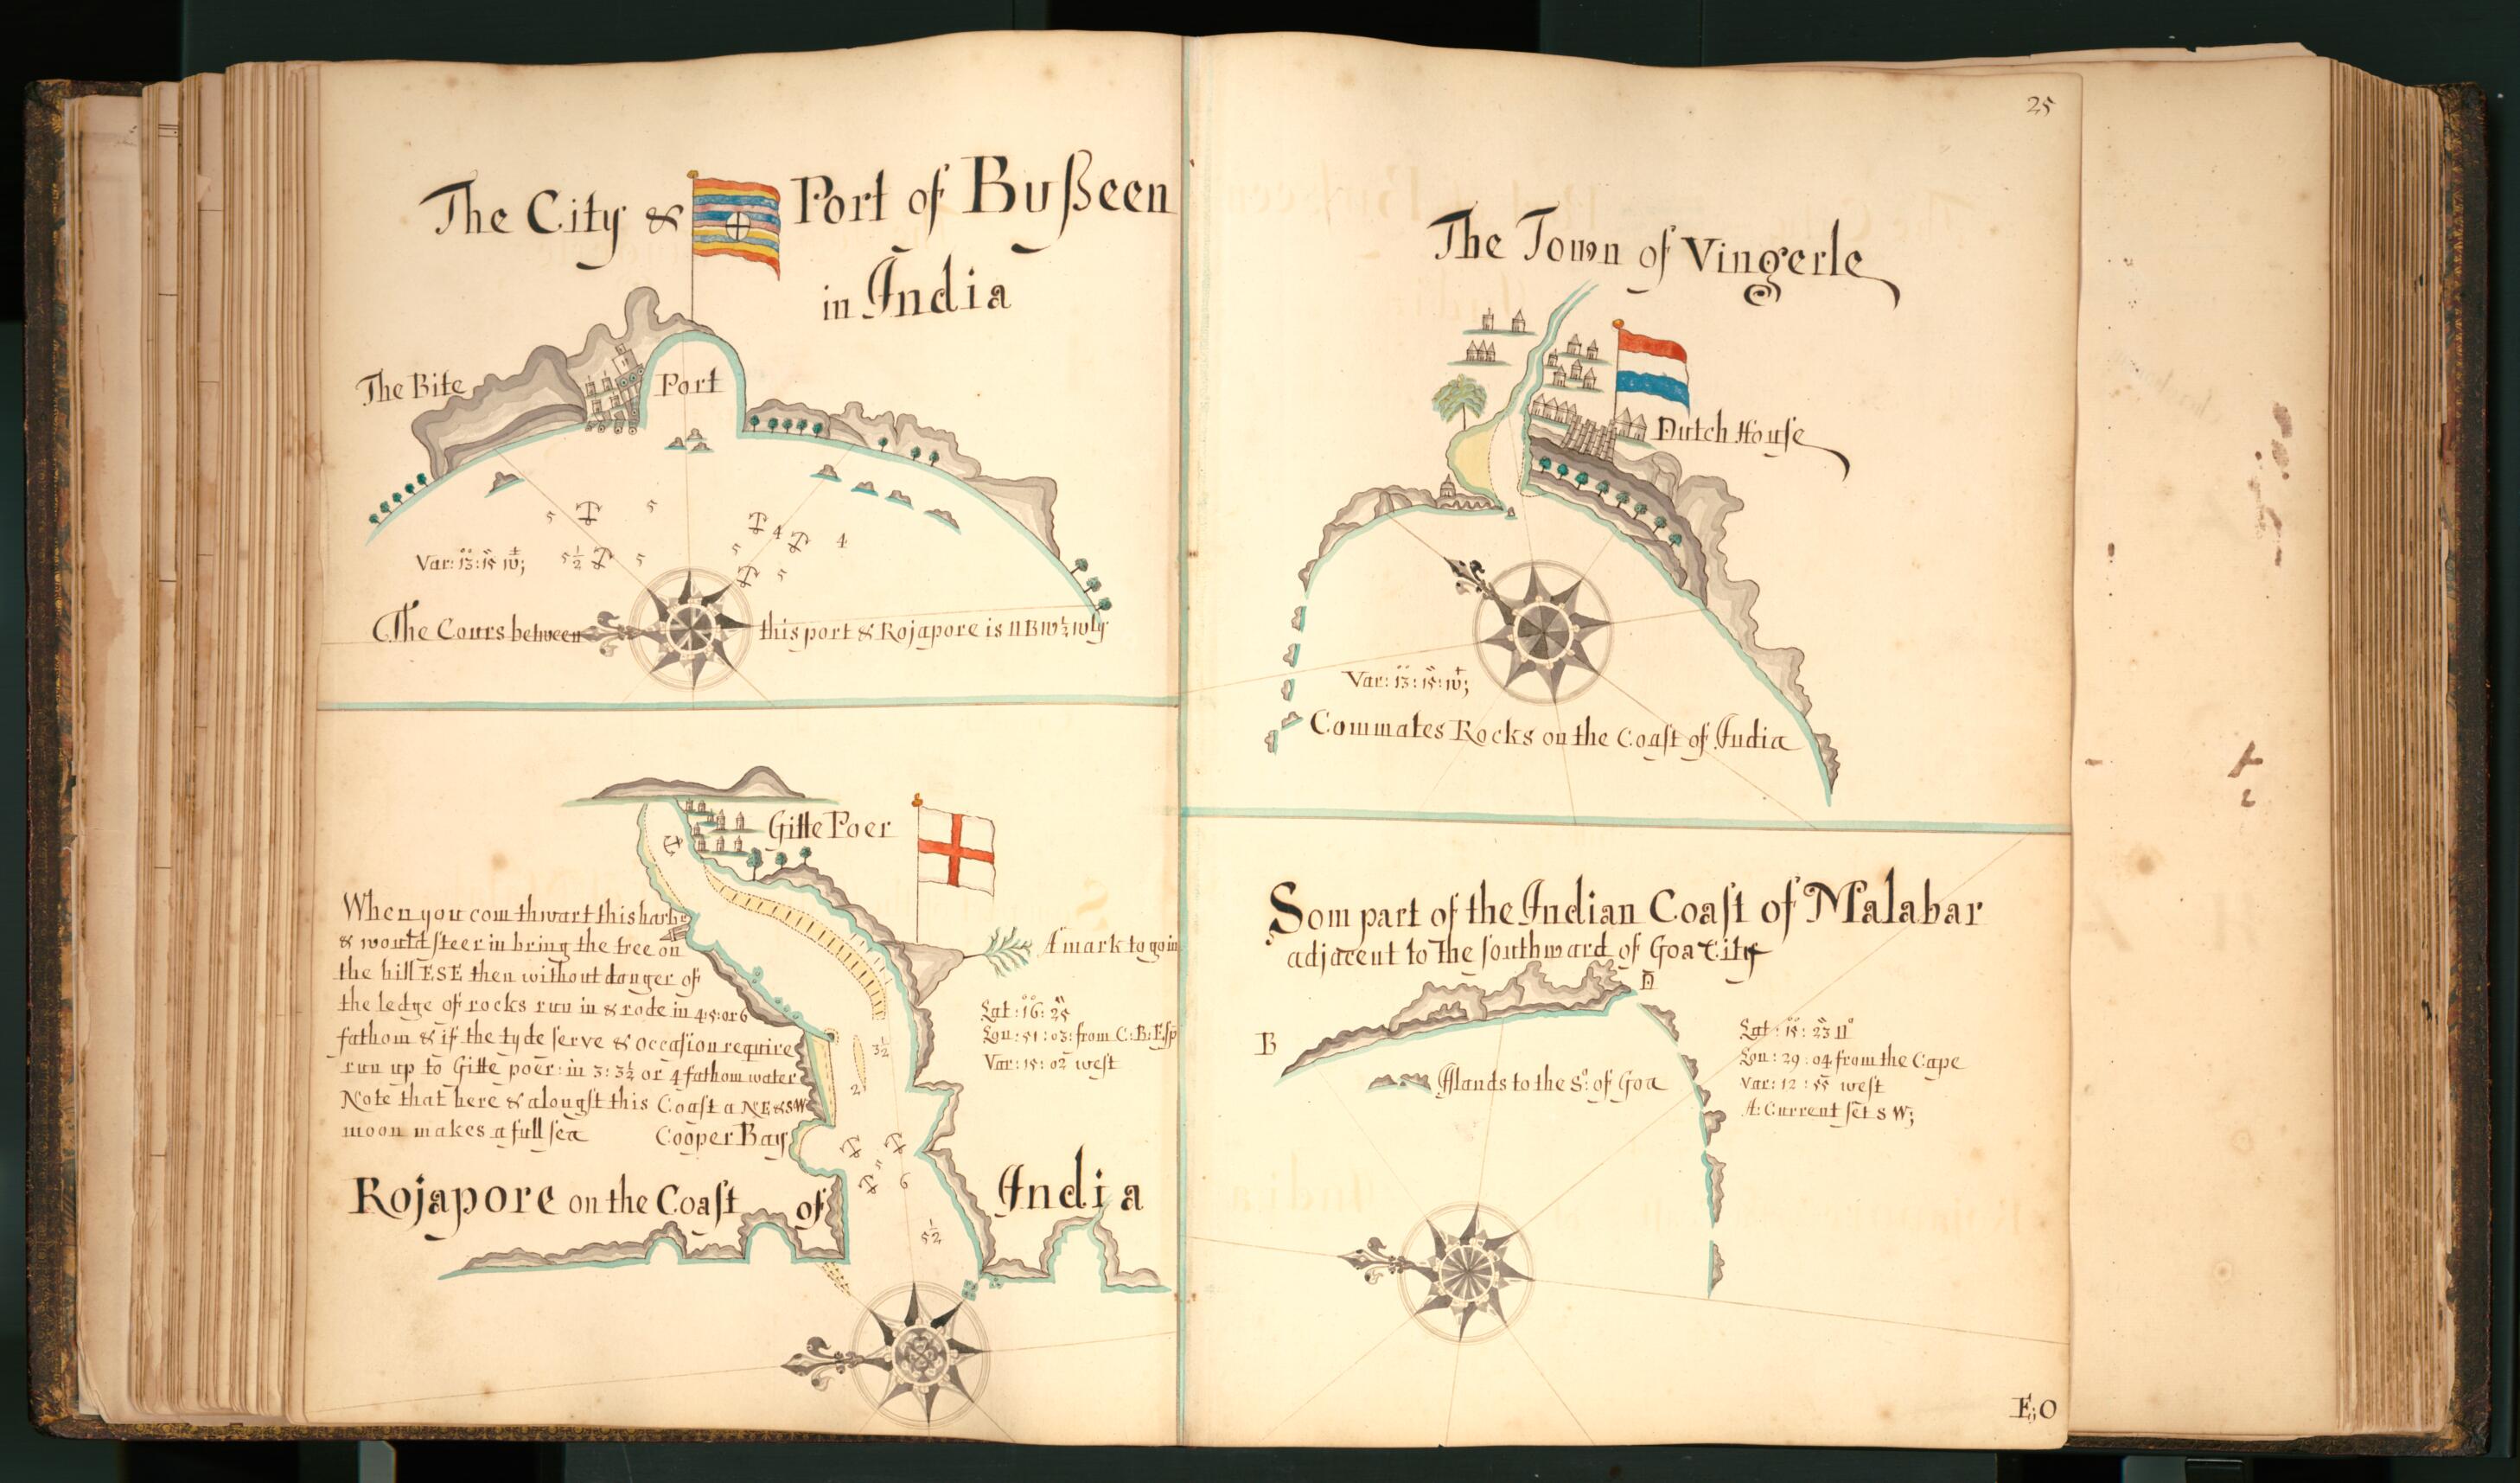 The City & Port of Bußeen
in India
The Bite
Port
5
5
4
4
5
5½
5
5
Var: 13: 15 w;
The Cours between this port & Rojapore is NBW½wly
Gitte Poer
When you com thwart this harbr
& would steer in bring the tree on
the hill ESE then without danger of
the ledge of rocks run in & rode in 4:5: or 6
fathom & if the tyde serve & occasion require
run up to Gitte poer: in 3: 3½ or 4 fathom water
Note that here & alongst this Coast a NE&SW
moon makes a full sea
Cooper Bay
A mark to go in
Lat: 16: 25
Lon: 51: 03: from C:B:Esp
Var: 15: 02 west
3½
2
5
6
5½
Rojapore on the Coast of India
25
The Town of Vingerle
Dutch House
Var: 13: 15: w;
Commates Rocks on the Coast of India
Som part of the Indian Coast of Malabar
adjacent to the southward of Goa City
B
Islands to the So. of Goa
Lat: 15: 23 N
Lon: 29: 04 from the Cape
Var: 12: 55 west
A: Current set S W;
E;O